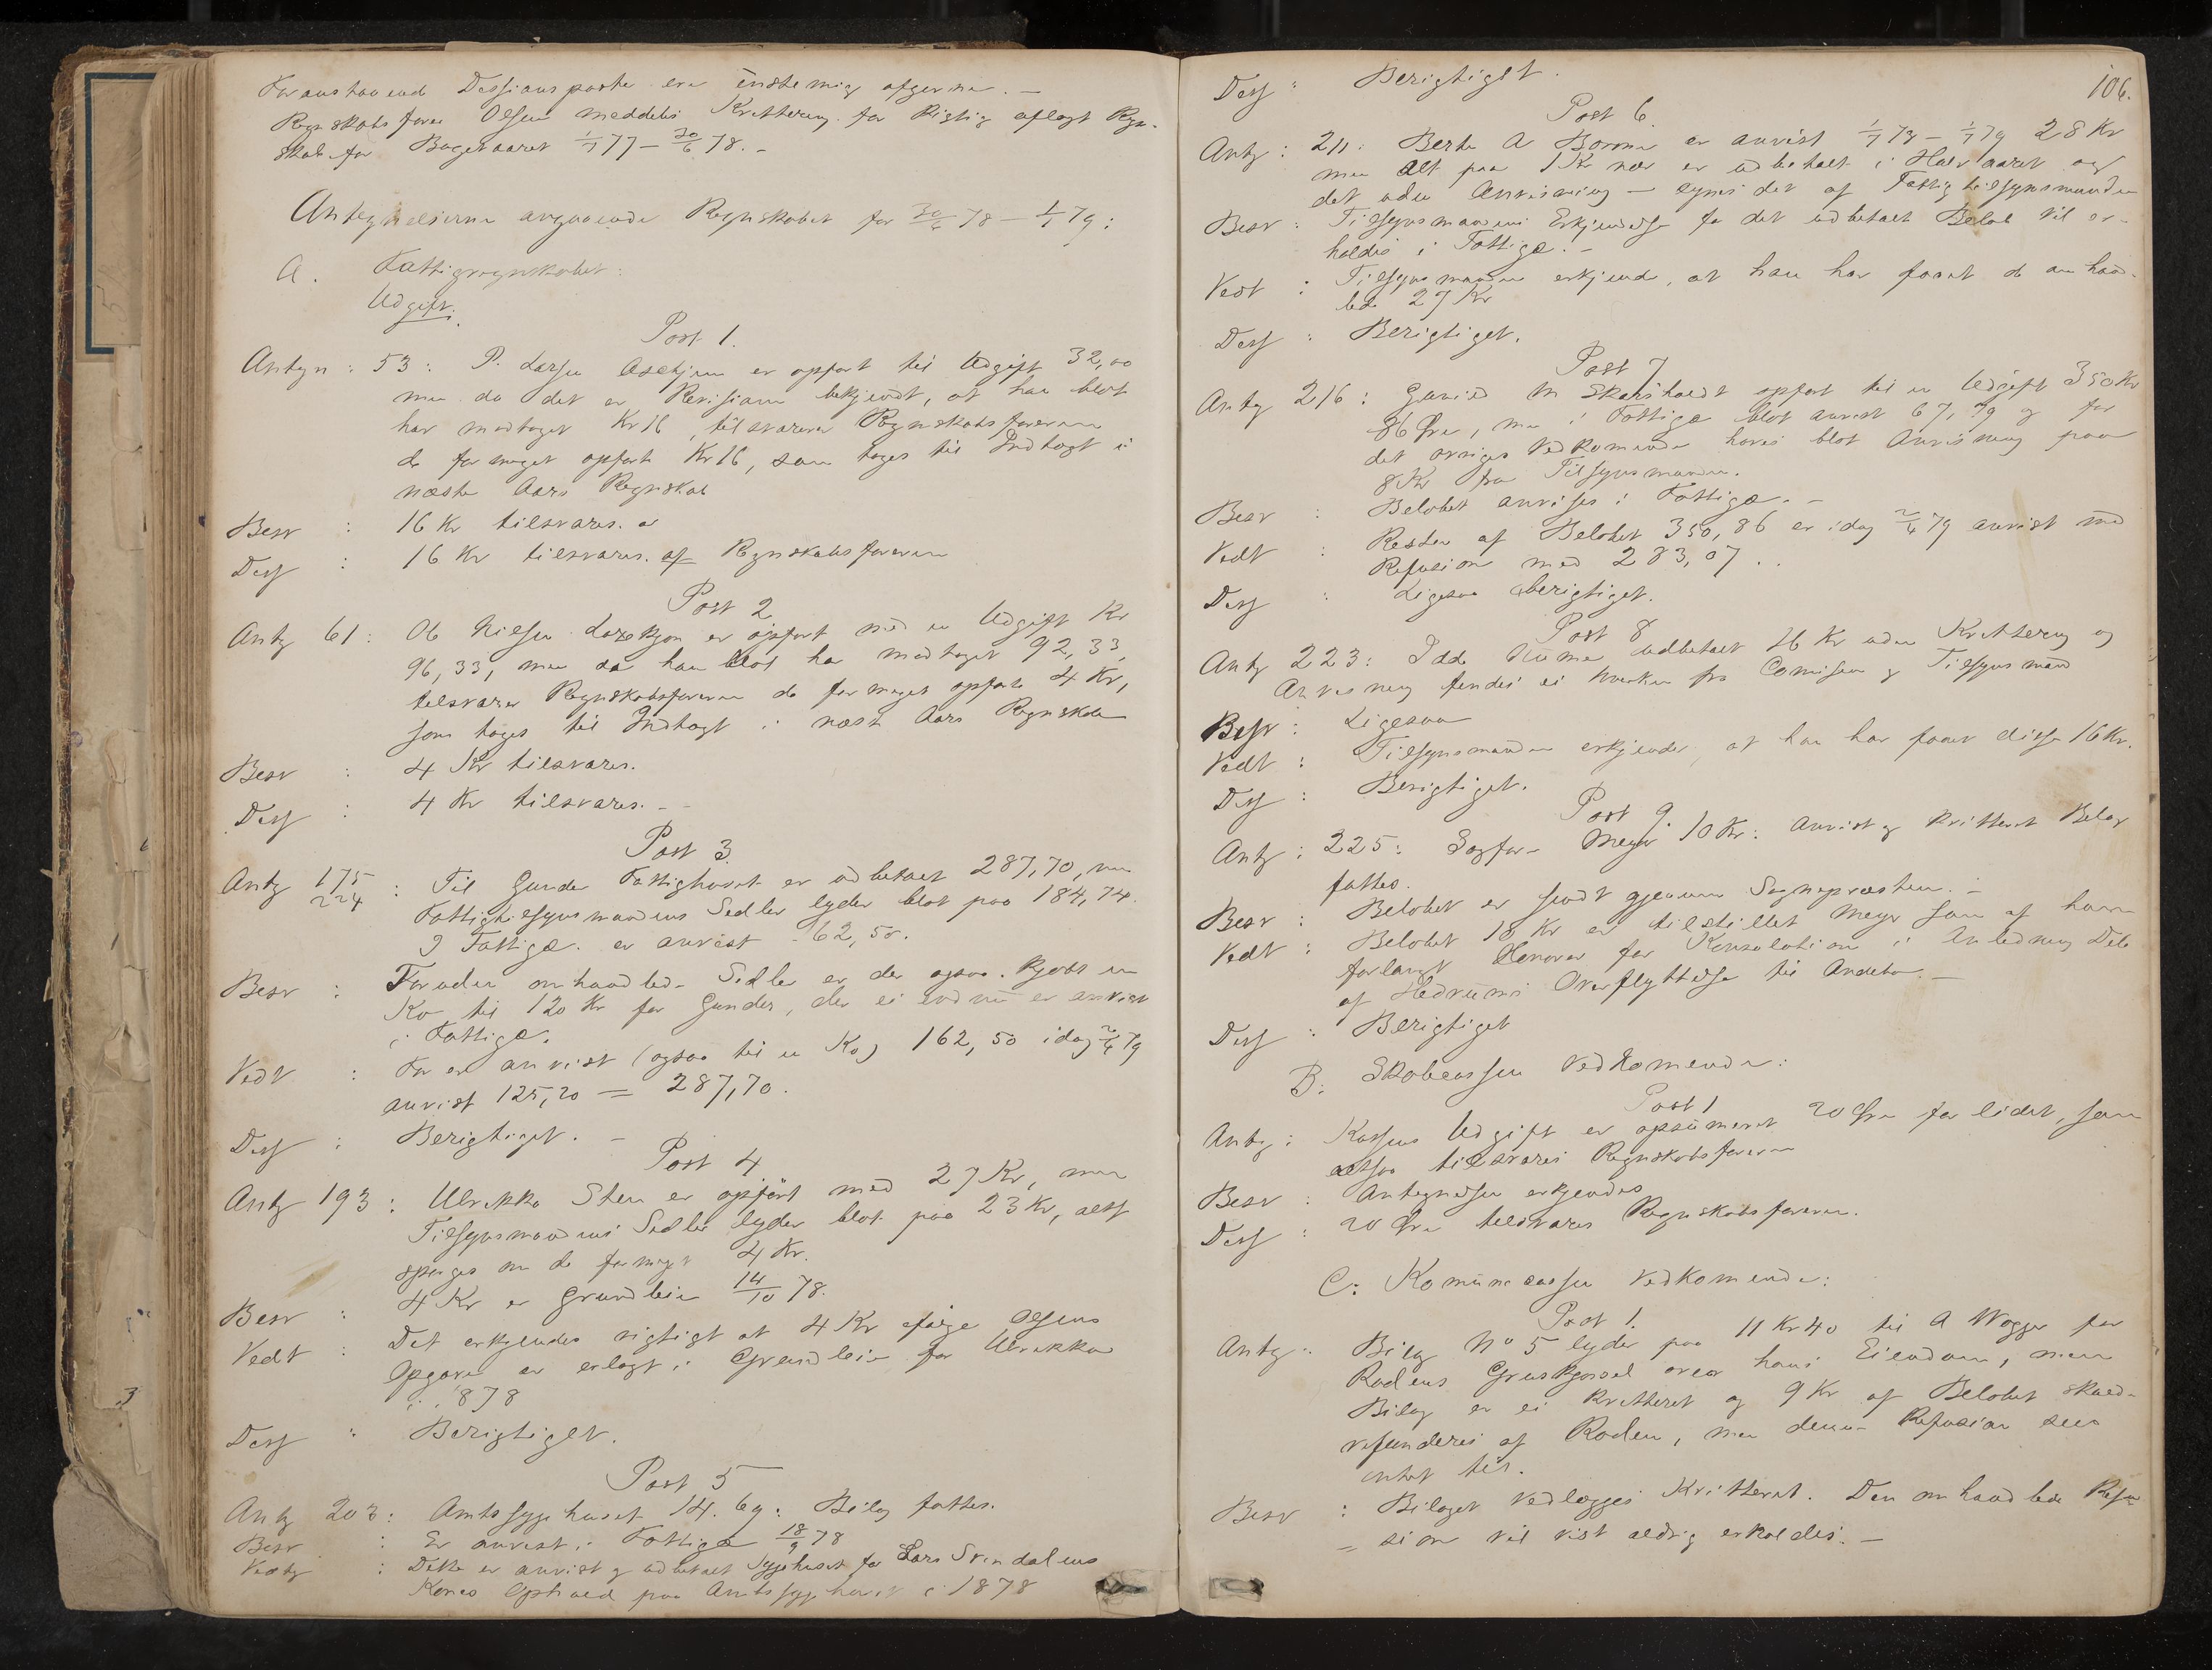 Foranstaaende Desisionsposter ere enstemmig afgjorne. —
Regnskabsfører Olsen meddeles Kvittering for Rigtig aflagt Regn-
skab for Bogetaaret 1/7 77 – 30/6 78. –
Antegnelserne angaaende Regnskabet for 30/6 78 – 1/1 79:
A. Fattigregnskabet:
Udgift.
Post 1.
Antegn: 53: P. Larsen Askjem er opført til Udgift 32,00
men da det er Revisionen bekjendt, at han blot
har modtaget Kr 16, tilsvarer Regnskabsføreren
de formeget opførte Kr 16, som tages til Indtægt i
næste Aars Regnskab
Besv: 16 Kr tilsvares.
Des: 16 Kr tilsvares. af Regnskabsføreren
Post 2
Antg 61: Ob Nilsen er opført med en Udgift Kr
96,33, men da han blot har modtaget 92,33,
tilsvarer Regnskabsføreren de formeget opførte 4 Kr,
som tages til Indtægt i næste Aars Regnskab
Besv: 4 Kr tilsvares.
Des: 4 Kr tilsvares. –
Post 3.
Antg 175 224: Til Gunder Fattighuset er udbetalt 287,70, men
Fattigtilsynsmandens Sedler lyder blot paa 184,74.
I Fattigc. er anvist 162,50.
Besv: Foruden omhandlede Sedler er der ogsaa kjøbt en
Ko til 120 Kr for Gunder, der ei endnu er anvist
i Fattigc.
Vedt: Før er anvist (ogsaa til en Ko) 162,50 idag 2/4 79
anvist 125,20 = 287,70.
Des: Berigtiget. –
Post 4
Antg 193: Ulrikka Sten er opført med 27 Kr, men
Tilsynsmandens Sedler lyder blot paa 23 Kr, altsaa
spørges om de formeget 4 Kr.
Besv: 4 Kr er Grundleie 14/10 78.
Vedt: Det erkjendes rigtigt at 4 Kr ifølge Olsens
Opgave er erlagt i Grundleie for Ulrikka
i 1878
Des: Berigtiget.
Post 5
Antg 202: Amtssygehuset 14.69: Bilag fattes.
Besv: Er anvist i Fattigc 18/9 78
Vedtg: Dette er anvist og udbetalt Sygehuset for Lars Svendalens
Kones Ophold paa Amtssygehuset i 1878
106.
Des: Berigtiget.
Post 6.
Antg: 211: Berthe A Bomme er anvist 1/7 78 – 1/1 79 28 Kr
men alt paa 1 Kr nær er udbetalt i Halvaaret og
det uden Anvisning – synes det af Fattigtilsynsmanden
Besv: Tilsynsmandens Erkjendelse for det udbetalt Beløb vil er-
holdes i Fattigc. –
Vedt: Tilsynsmanden erkjende, at han har faaet de omhand-
lede 27 Kr
Des: Berigtiget.
Post 7
Antg 216: M Skarsholdt opført til en Udgift 350 Kr
86 Øre, men i Fattigc blot anvist 67,79 og for
det øvriges Vedkommende haves blot Anvisning paa
8 Kr fra Tilsynsmanden.
Besv: Beløbet anvises i Fattigc. –
Vedt: Resten af Beløbet 350,86 er idag 2/4 79 anvist med
Refusion med 283,07.
Des: Ligesaa berigtiget.
Post 8
Antg 223: Udbetalt 16 Kr uden Kvittering og
Anvisning findes ei hverken fra Comisionen og Tilsynsmand
Besv: Ligesaa
Vedt: Tilsynsmanden erkjender, at han har faaet disse 16 Kr.
Des: Berigtiget.
Post 9.
Antg: 225: Sagfør. Meyer 10 Kr: Anvist og kvitteret Bilag
fattes.
Besv: Beløbet er sendt gjennem Sognepræsten. –
Vedt: Beløbet 10 Kr er tilstillet Meyer som af ham
forlangt Honorar for Konsulation i Anledning Dele
af Hedrums Overflyttelse til Andebu. –
Des: Berigtiget
B: Skolecassen Vedkomende:
Post 1
Antg: Kassens Udgift er opsumeret 20 Øre for lidet, som
altsaa tilsvares Regnskabsføreren
Besv: Antegnelsen erkjendes
Des: 20 Øre tilsvares Regnskabsføreren.
C: Komunecassen Vedkomende:
Post 1.
Antg: Bilag No 5 lyder paa 11 Kr 40 til A Wegger for
Rodens Gruskjørsel over hans Eiendom, men
Bilag er ei kvitteret og 9 Kr af Beløbet skulde
refunderes af Roden, men denne Refusion sees
intet til.
Besv: Bilaget vedlægges Kvitteret. Den omhandlede Refu-
– sion vil vist aldrig erholdes. –